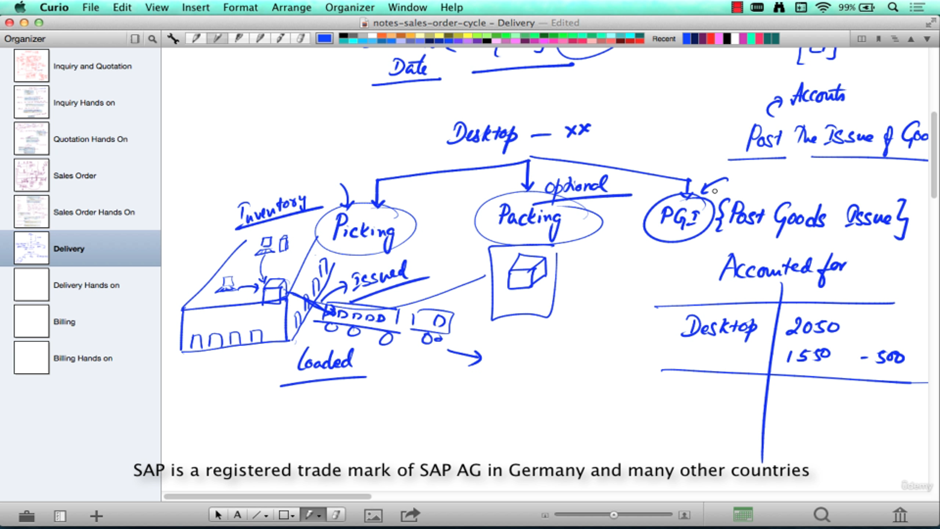 Curio File Edit View Insert Format Arrange Organizer Window Help
99%
notes-sales-order-cycle - Delivery — Edited
Organizer
Recent
Inquiry and Quotation
Inquiry Hands on
Quotation Hands On
Sales Order
Sales Order Hands On
Delivery
Delivery Hands on
Billing
Billing Hands on
Date
Accounts
Post The Issue of Goo
Desktop - xx
optional
Inventory
Picking
Packing
PGI {Post Goods Issue}
Issued
Loaded
Accounted for
Desktop 2050
1550 - 500
SAP is a registered trade mark of SAP AG in Germany and many other countries
Udemy